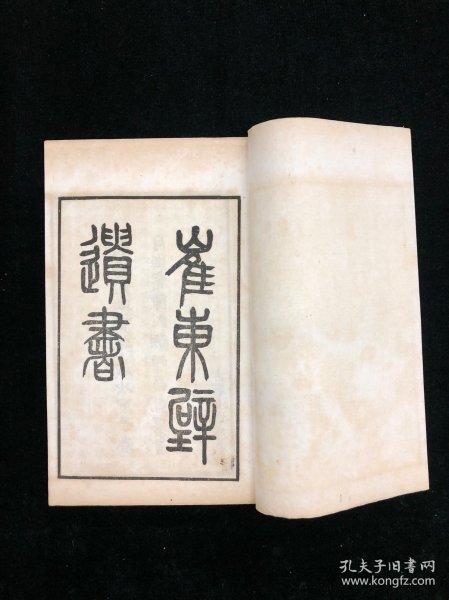 崔東壁
遺書
孔夫子旧书网
www.kongfz.com